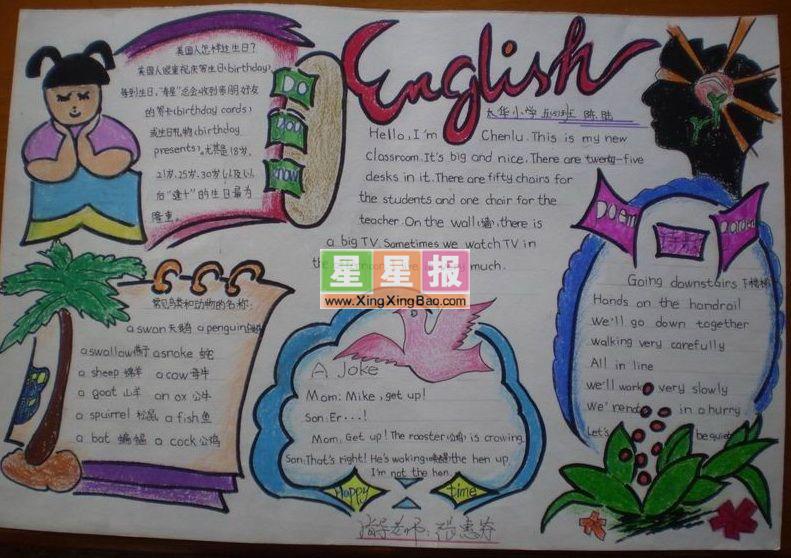 English
大华小学 五(3)班 陈陆
美国人怎样过生日?
美国人很重视庆寄生日(birthday),
每到生日, "寿星"总会收到亲朋好友
的贺卡(birthday cards)
或生日礼物(birthday
presents), 尤其是18岁、
21岁、25岁、30岁以及以
后"逢十"的生日最为
隆重。
Do
you
know
Hello, I'm Chenlu. This is my new
classroom. It's big and nice. There are twenty-five
desks in it. There are fifty chairs for
the students and one chair for the
teacher. On the wall(墙), there is
a big TV. Sometimes we watch TV in
the much.
星星报
www.XingXingBao.com
常见鸟类和动物的名称:
a swan 天鹅 a penguin
a swallow 燕子 a snake 蛇
a sheep 绵羊 a cow 母牛
a goat 山羊 an ox 公牛
a spuirrel 松鼠 a fish 鱼
a bat 蝙蝠 a cock 公鸡
A Joke
Mom: Mike, get up!
Son: Er···!
Mom, Get up! The rooster(公鸡) is crowing.
Son: That's right! He's waking(唤醒) the hen up,
I'm not the hen.
Happy
time
Poem
Garden
Going downstairs 下楼梯
Hands on the handrail
We'll go down together
walking very carefully
All in line
we'll work very slowly
We're not in a hurry
Let's be quiet
指导老师: 张惠芬